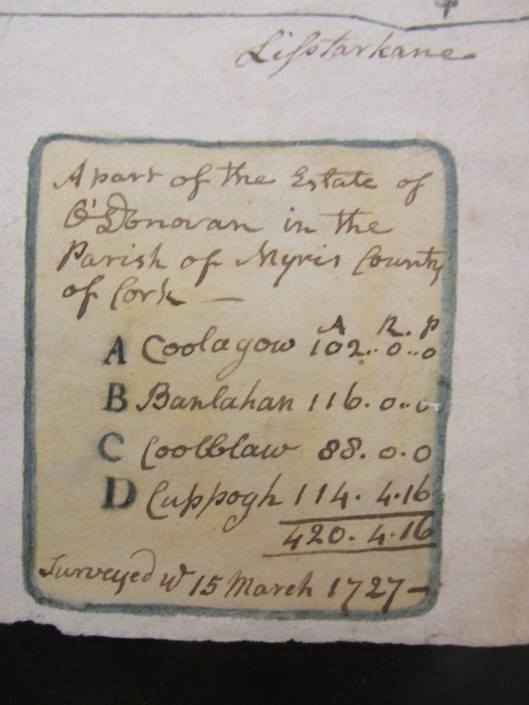 Lisstarkane
A part of the Estate of
O'Donovan in the
Parish of Myris County
of Cork —
A. R. P
A Coolagow 102..0..0
B Banlahan 116.0..0
C Coolblaw 88.0.0
D Cuppogh 114.4.16
420.4.16
Surveyed 15 March 1727 —